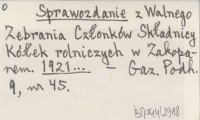 Sprawozdanie z Walnego
Zebrania Członków Składnicy
Kółek rolniczych w Zakopa-
nem. 1921... — Gaz. Podh.
9, nr 45.